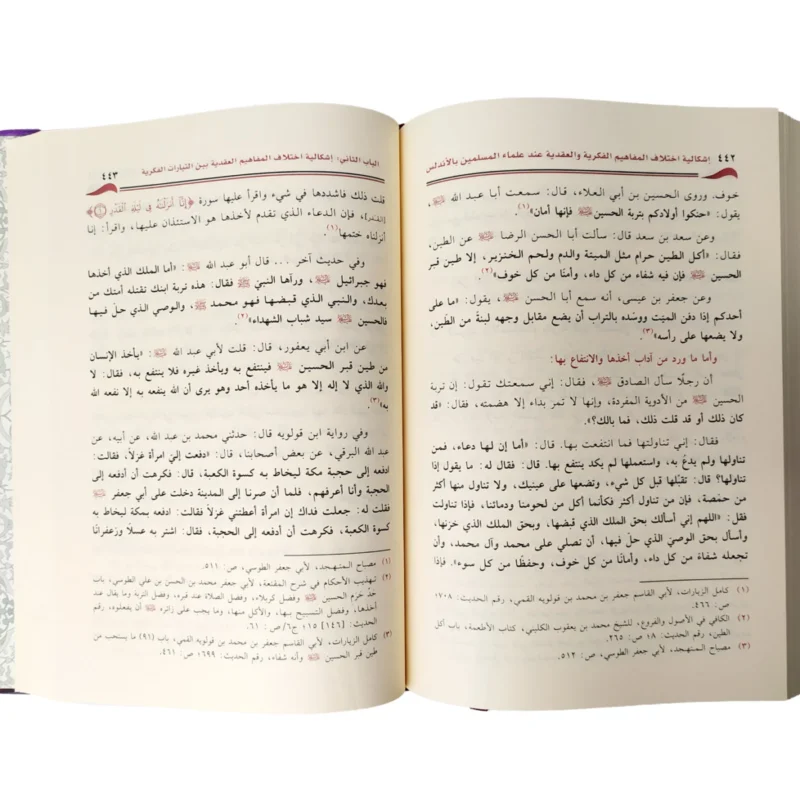 ٤٤٢ إشكالية اختلاف المفاهيم الفكرية والعقدية عند علماء المسلمين بالأندلس
خوف. وروى الحسين بن أبي العلاء، قال: سمعت أبا عبد الله ﷺ،
يقول: «حنكوا أولادكم بتربة الحسين ﷺ فإنها أمان»(١).
وعن سعد بن سعد قال: سألت أبا الحسن الرضا ﷺ عن الطين،
فقال: «أكل الطين حرام مثل الميتة والدم ولحم الخنزير، إلا طين قبر
الحسين ﷺ فإن فيه شفاء من كل داء، وأمنًا من كل خوف»(٢).
وعن جعفر بن عيسى، أنه سمع أبا الحسن ﷺ، يقول: «ما على
أحدكم إذا دفن الميّت ووسّده بالتراب أن يضع مقابل وجهه لبنةً من الطّين،
ولا يضعها على رأسه»(٣).
وأما ما ورد من آداب أخذها والانتفاع بها:
أن رجلًا سأل الصادق ﷺ، فقال: إني سمعتك تقول: إن تربة
الحسين ﷺ من الأدوية المفردة، وإنها لا تمرّ بداء إلا هضمته، فقال: «قد
كان ذلك أو قد قلت ذلك، فما بالك؟».
فقال: إني تناولتها فما انتفعت بها. قال: «أما إن لها دعاء، فمن
تناولها ولم يدعُ به، واستعملها لم يكد ينتفع بها. قال: فقال له: ما يقول إذا
تناولها؟ قال: تقبّلها قبل كل شيء، وتضعها على عينيك، ولا تناول منها أكثر
من حمّصة، فإن من تناول أكثر فكأنما أكل من لحومنا ودمائنا، فإذا تناولت
فقل: «اللهم إني أسألك بحق الملك الذي قبضها، وبحق الملك الذي خزنها،
وأسأل بحق الوصيّ الذي حلّ فيها، أن تصلي على محمد وآل محمد، وأن
تجعله شفاءً من كل داء، وأمانًا من كل خوف، وحفظًا من كل سوء». فإذا
(١) كامل الزيارات، لأبي القاسم جعفر بن محمد بن قولويه القمي، رقم الحديث: ٧٠٨؛
ص: ٤٦٦.
(٢) الكافي في الأصول والفروع، للشيخ محمد بن يعقوب الكليني، كتاب الأطعمة، باب أكل
الطين، رقم الحديث: ٨؛ ص: ٢٦٥.
(٣) مصباح المتهجد، لأبي جعفر الطوسي، ص: ٥١٢.
الباب الثاني: إشكالية اختلاف المفاهيم العقدية بين التيارات الفكرية ٤٤٣
قلت ذلك فاشددها في شيء واقرأ عليها سورة ﴿إِنَّا أَنزَلْنَاهُ فِي لَيْلَةِ الْقَدْرِ ۝﴾
[القدر]، فإن الدعاء الذي تقدم لأخذها هو الاستئذان عليها، واقرأ: إنا
أنزلناه ختمها(١).
وفي حديث آخر ... قال أبو عبد الله ﷺ: «أما الملك الذي أخذها
فهو جبرائيل ﷺ، ورآها النبيّ ﷺ فقال: هذه تربة ابنك تقتله أمتك من
بعدك، والنبي الذي قبضها فهو محمد ﷺ، والوصي الذي حلّ فيها
فالحسين ﷺ سيد شباب الشهداء»(٢).
عن ابن أبي يعفور، قال: قلت لأبي عبد الله ﷺ: «يأخذ الإنسان
من طين قبر الحسين ﷺ فينتفع به ويأخذ غيره فلا ينتفع به، فقال: لا
والله الذي لا إله إلا هو ما يأخذه أحد وهو يرى أن الله ينفعه به إلا نفعه الله
به»(٣).
وفي رواية ابن قولويه قال: حدثني محمد بن عبد الله، عن أبيه، عن
عبد الله البرقي، عن بعض أصحابنا، قال: «دفعت إليّ امرأة غزلاً، فقالت:
ادفعه إلى حجبة مكة ليخاط به كسوة الكعبة، قال: فكرهت أن أدفعه إلى
الحجبة وأنا أعرفهم، فلما أن صرنا إلى المدينة دخلت على أبي جعفر ﷺ
فقلت له: جعلت فداك إن امرأة أعطتني غزلاً فقالت: ادفعه بمكة ليخاط به
كسوة الكعبة، فكرهت أن أدفعه إلى الحجبة، فقال: اشتر به عسلًا وزعفرانًا
(١) مصباح المتهجد، لأبي جعفر الطوسي، ص: ٥١١.
(٢) تهذيب الأحكام في شرح المقنعة، لأبي جعفر محمد بن الحسن بن علي الطوسي، باب
حدّ حرَم الحسين ﷺ وفضل كربلاء، وفضل الصلاة عند قبره، وفضل التربة وما يقال عند
أخذها، وفضل التسبيح بها، والأكل منها، وما يجب على زائره ﷺ أن يفعلوه، رقم
الحديث: [١٤٦] ١٥؛ ج٦/ص: ٦١.
(٣) كامل الزيارات، لأبي القاسم جعفر بن محمد بن قولويه القمي، باب (٩١) ما يستحب من
طين قبر الحسين ﷺ وأنه شفاء، رقم الحديث: ٦٩٩؛ ص: ٤٦١.